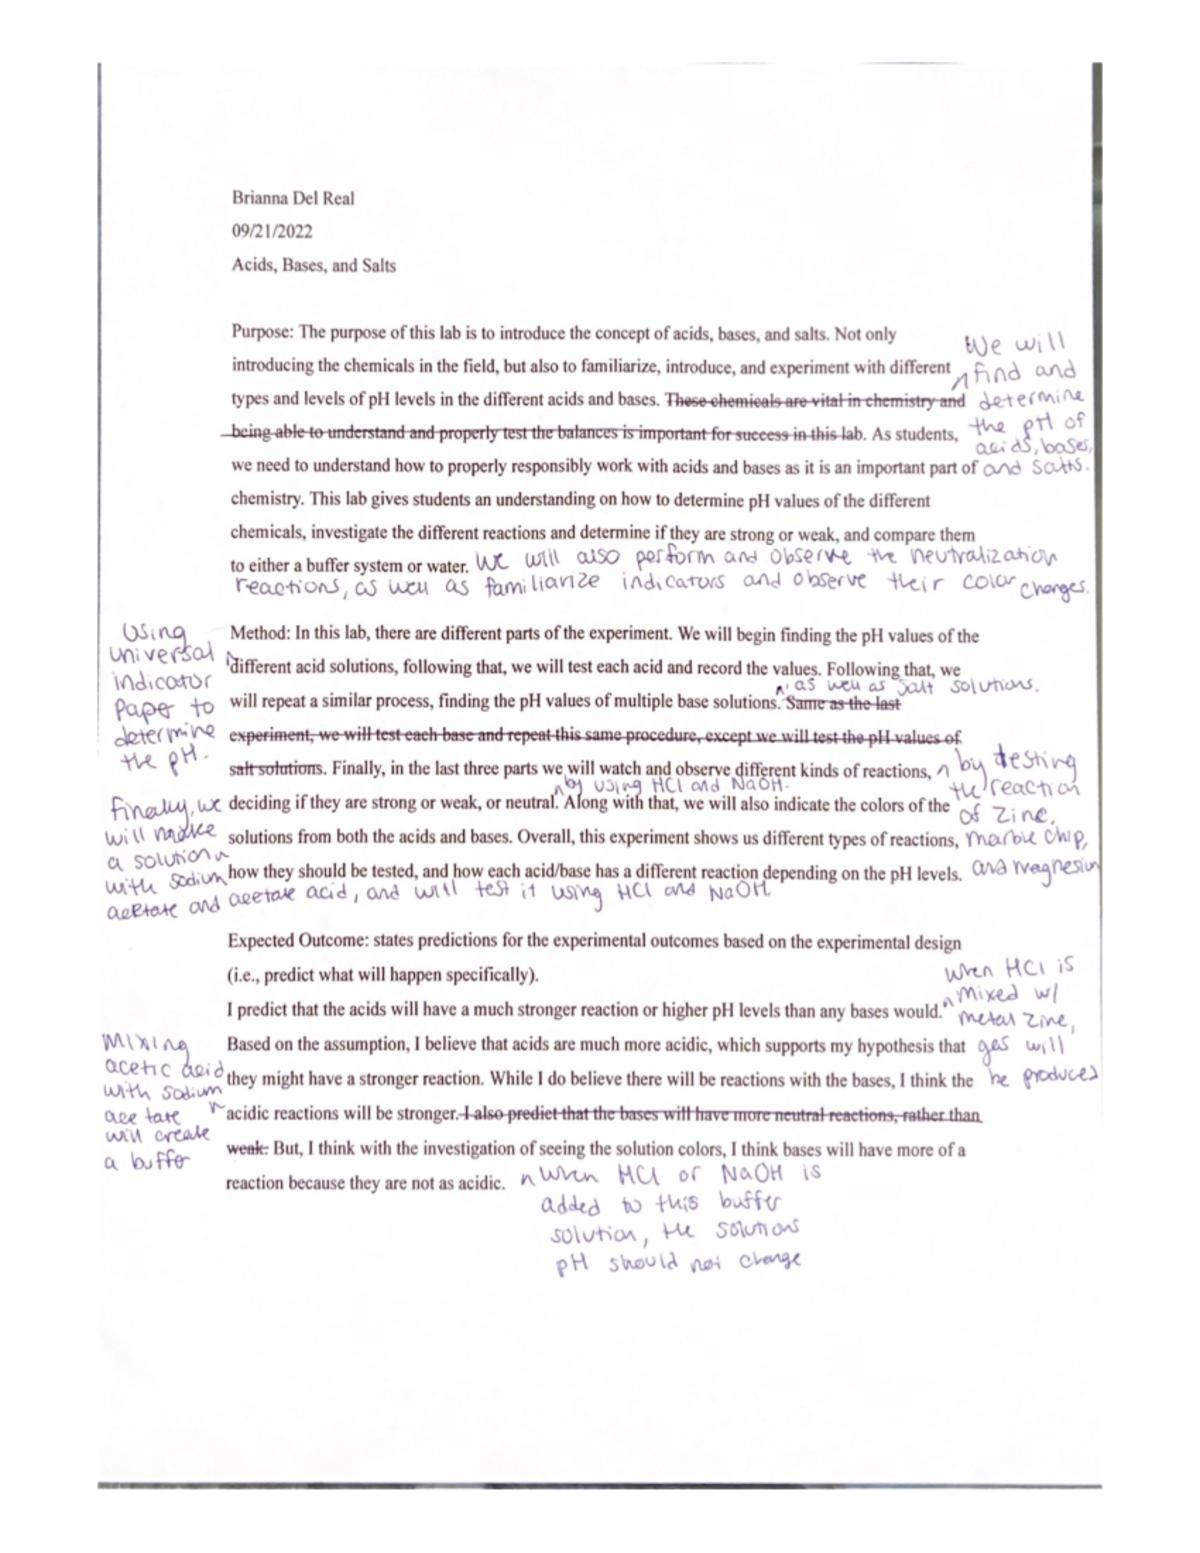 Brianna Del Real
09/21/2022
Acids, Bases, and Salts
Purpose: The purpose of this lab is to introduce the concept of acids, bases, and salts. Not only
introducing the chemicals in the field, but also to familiarize, introduce, and experiment with different
types and levels of pH levels in the different acids and bases. These chemicals are vital in chemistry and
being able to understand and properly test the balances is important for success in this lab. As students,
we need to understand how to properly responsibly work with acids and bases as it is an important part of
chemistry. This lab gives students an understanding on how to determine pH values of the different
chemicals, investigate the different reactions and determine if they are strong or weak, and compare them
to either a buffer system or water. We will also perform and observe the neutralization
reactions, as well as familiarize indicators and observe their color changes.
We will
find and
determine
the pH of
acids, bases,
and salts.
Method: In this lab, there are different parts of the experiment. We will begin finding the pH values of the
different acid solutions, following that, we will test each acid and record the values. Following that, we
as well as salt solutions.
will repeat a similar process, finding the pH values of multiple base solutions. Same as the last
experiment, we will test each base and repeat this same procedure, except we will test the pH values of
salt solutions. Finally, in the last three parts we will watch and observe different kinds of reactions,
by using HCl and NaOH.
deciding if they are strong or weak, or neutral. Along with that, we will also indicate the colors of the
solutions from both the acids and bases. Overall, this experiment shows us different types of reactions,
how they should be tested, and how each acid/base has a different reaction depending on the pH levels.
using
universal
indicator
paper to
determine
the pH.
by testing
the reaction
of zinc,
marble chip,
and magnesium
Finally, we
will make
a solution
with sodium
acetate and acetate acid, and will test it using HCl and NaOH.
Expected Outcome: states predictions for the experimental outcomes based on the experimental design
(i.e., predict what will happen specifically).
I predict that the acids will have a much stronger reaction or higher pH levels than any bases would.
Based on the assumption, I believe that acids are much more acidic, which supports my hypothesis that
they might have a stronger reaction. While I do believe there will be reactions with the bases, I think the
acidic reactions will be stronger. I also predict that the bases will have more neutral reactions, rather than
weak. But, I think with the investigation of seeing the solution colors, I think bases will have more of a
reaction because they are not as acidic.
When HCl is
mixed w/
metal zinc,
gas will
be produced
Mixing
acetic acid
with sodium
acetate
will create
a buffer
When HCl or NaOH is
added to this buffer
solution, the solutions
pH should not change